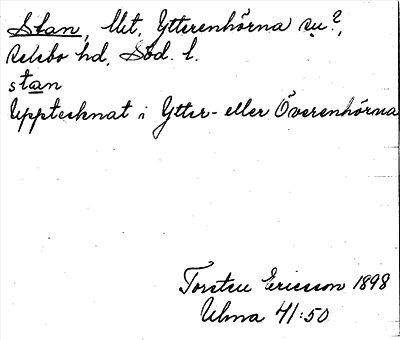 Stan, Ut, Ytterenhörna sn?,
Selebo hd, Söd. l.
stan
Upptecknat i Ytter- eller Överenhörna
Torsten Ericsson 1898
Ulma 41:50